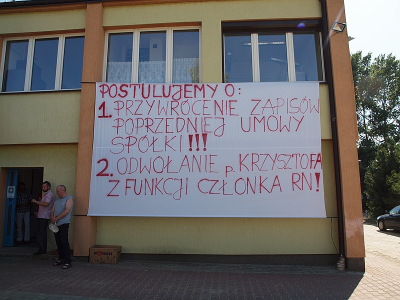 POSTULUJEMY O:
1. PRZYWRÓCENIE ZAPISÓW
POPRZEDNIEJ UMOWY
SPÓŁKI!!!
2. ODWOŁANIE p. KRZYSZTOFA
Z FUNKCJI CZŁONKA RN!